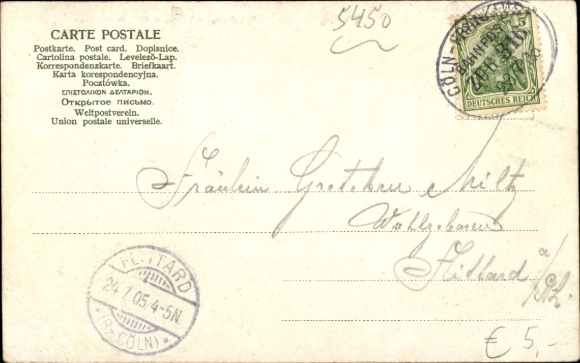 5450
CARTE POSTALE
Postkarte. Post card. Dopisnice.
Cartolina postale. Levelező-Lap.
Korrespondenzkarte. Briefkaart.
Karta korespondencyjna.
Pocztówka.
ΕΠΙΣΤΟΛΙΚΟΝ ΔΕΛΤΑΡΙΟΝ.
Открытое письмо.
Weltpostverein.
Union postale universelle.
5
DEUTSCHES REICH
CÖLN-
BAHNPOST
Fräulein Gretchen Miltz
Wohlgeboren
Flittard a/Rh.
FLITTARD
24.7.05.4-5N.
*(Bz. CÖLN)*
€ 5,-